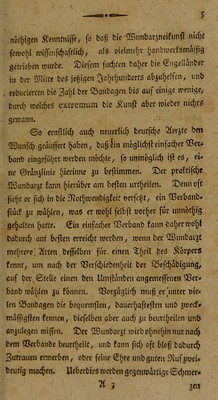 5
nöthigen Kenntnisse, so daß die Wundarzneikunst nicht
sowohl wissenschaftlich, als vielmehr handwerksmässig
getrieben wurde. Diesem suchten daher die Engelländer
in der Mitte des jetzigen Jahrhunderts abzuhelfen, und
reducierten die Zahl der Bandagen bis auf einige wenige,
durch welches extremum die Kunst aber wieder nichts
gewann.
So ernstlich auch neuerlich deutsche Aerzte den
Wunsch geäussert haben, daß ein möglichst einfacher Ver-
band eingeführet werden möchte, so unmöglich ist es, ei-
ne Gränzlinie hierinne zu bestimmen. Der praktische
Wundarzt kann hierüber am besten urtheilen. Denn oft
sieht er sich in die Nothwendigkeit versetzt, ein Verband-
stück zu wählen, was er wohl selbst vorher für unnöthig
gehalten hatte. Ein einfacher Verband kann daher wohl
dadurch am besten erreicht werden, wenn der Wundarzt
mehrere Arten desselben für einen Theil des Körpers
kennt, um nach der Verschiedenheit der Beschädigung,
auf der Stelle einen den Umständen angemessenen Ver-
band wählen zu können. Vorzüglich muß er unter vie-
len Bandagen die bequemsten, dauerhaftesten und zweck-
mässigsten kennen, dieselben aber auch zu beurtheilen und
anzulegen wissen. Der Wundarzt wird ohnehin nur nach
dem Verbande beurtheilt, und kann sich oft bloß dadurch
Zutrauen erwerben, oder seine Ehre und guten Ruf zwei-
deutig machen. Ueberdies werden gegenwärtige Schmer-
A 3
zen